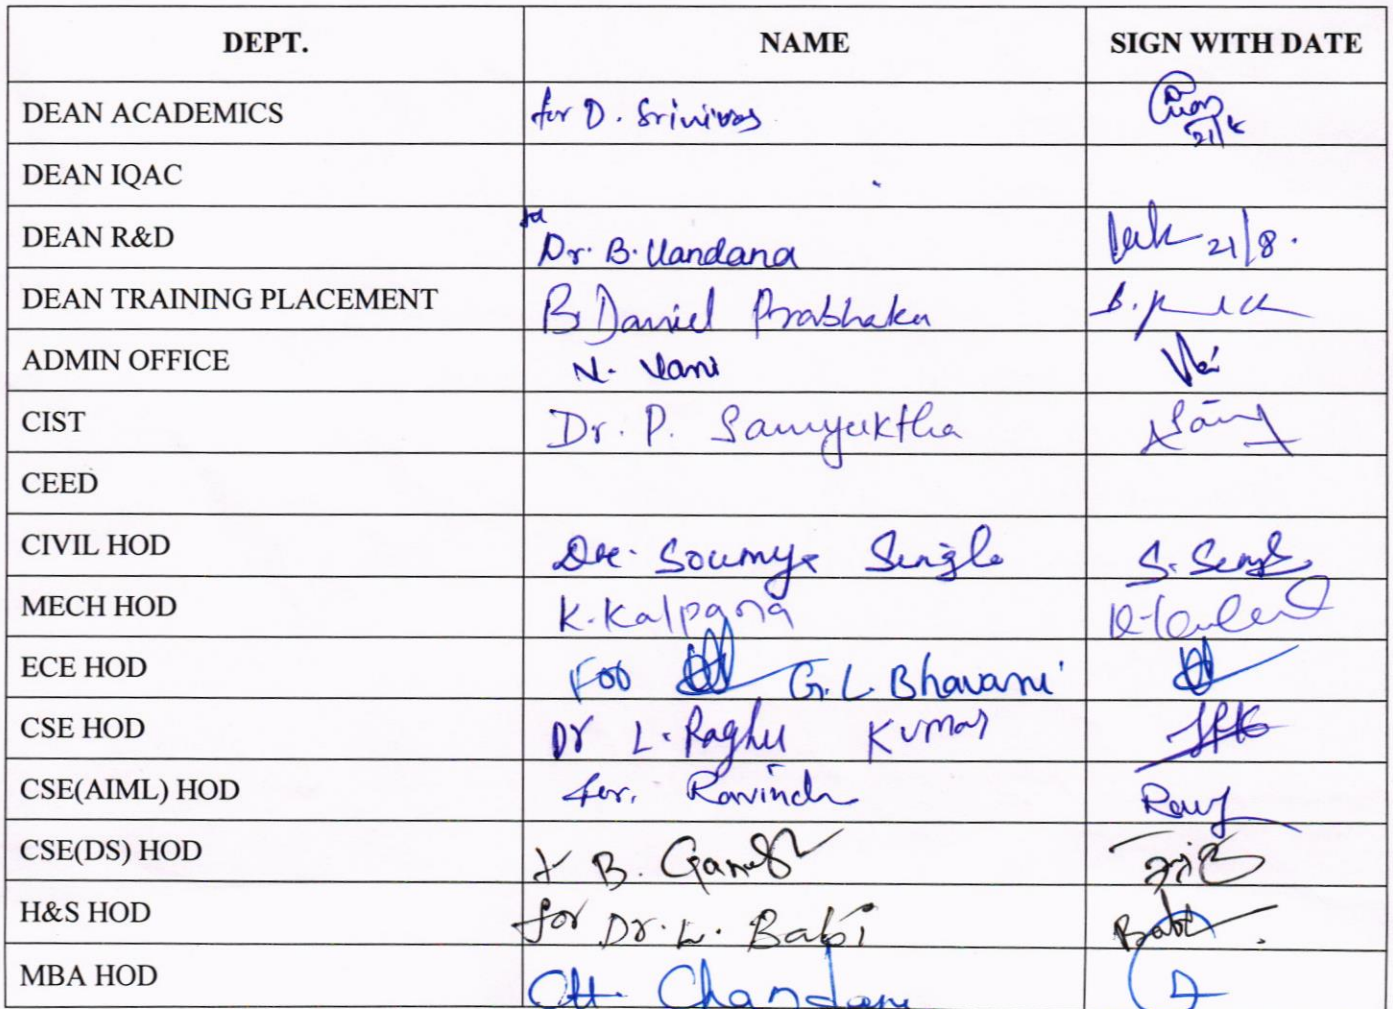 DEPT. NAME SIGN WITH DATE
DEAN ACADEMICS for D. Srinivas 21/8
DEAN IQAC
DEAN R&D for Dr. B. Vandana 21/8.
DEAN TRAINING PLACEMENT B. Daniel Prabhakar
ADMIN OFFICE N. Vani
CIST Dr. P. Samyuktha
CEED
CIVIL HOD Dr. Soumya Single S. Single
MECH HOD K. Kalpana
ECE HOD For G. L. Bhavani
CSE HOD Dr L. Raghu Kumar
CSE(AIML) HOD for. Ravinder
CSE(DS) HOD B. Ganesh
H&S HOD for Dr. L. Babi Babi
MBA HOD CH. Chandana